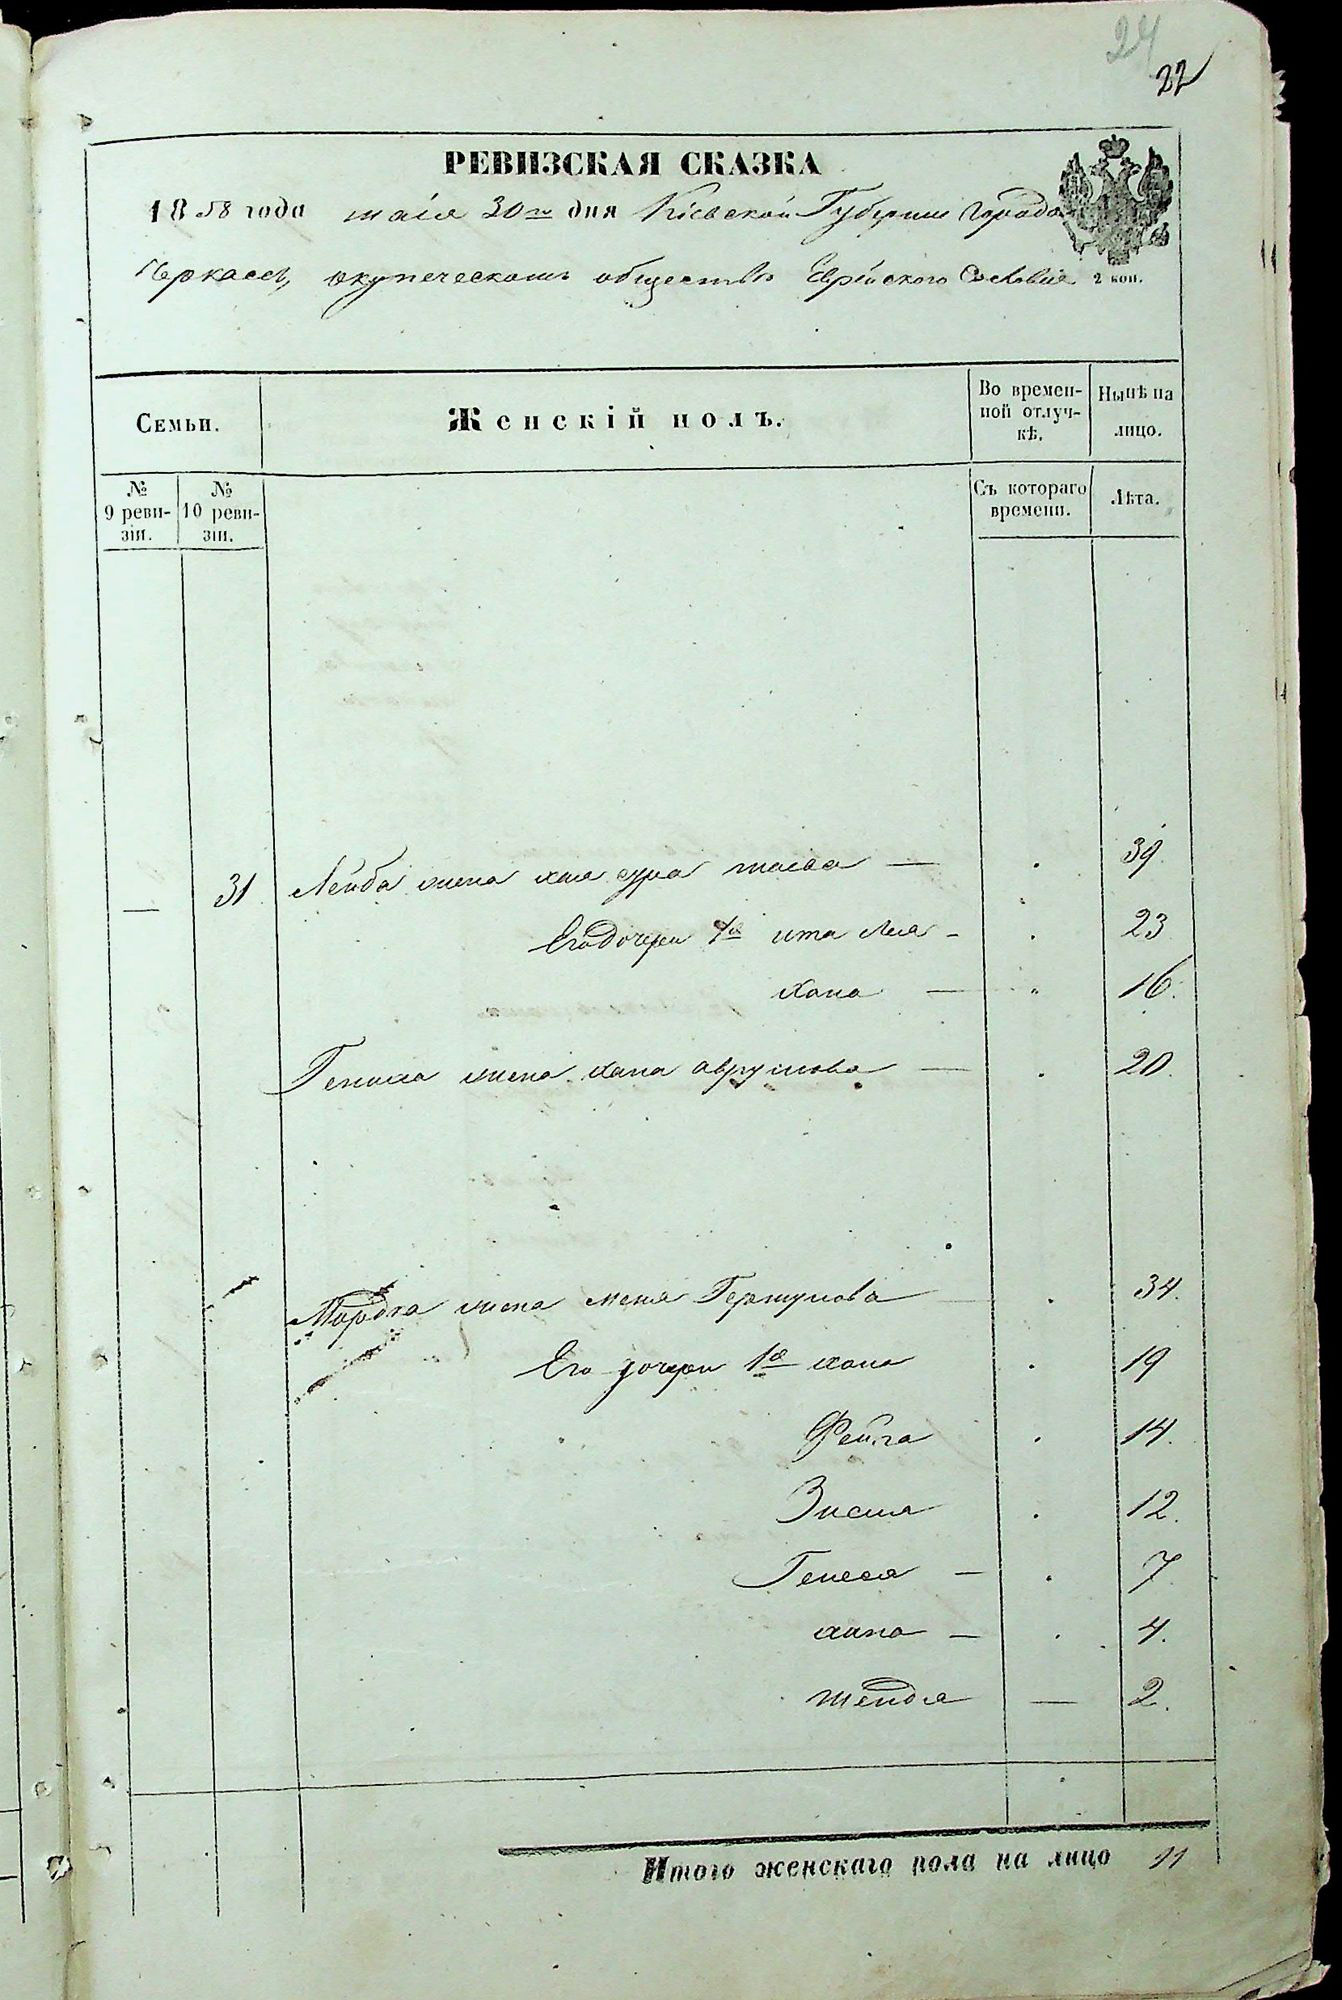 24
22
РЕВИЗСКАЯ СКАЗКА
1858 года маія 30го дня Кіевской Губерніи города
Черкассъ, окупеческомъ обществѣ Еврейского Сословія 2 коп.
Семьи.
Женскій полъ.
Во времен-
ной отлуч-
кѣ.
Нынѣ на
лицо.
№
9 реви-
зіи.
№
10 реви-
зіи.
Съ котораго
времени.
Лѣта.
— 31 Лейба жена хая сура — 39
Его дочери 1я ита Лея - 23
Хана — 16.
жена хана аврумова — 20
Мордка жена Гершунова — 34.
Его дочери 1я хана 19
Фейга 14.
Зисля 12.
Генеся — 7
хана — 4.
Шендля — 2.
Итого женскаго пола на лицо 11